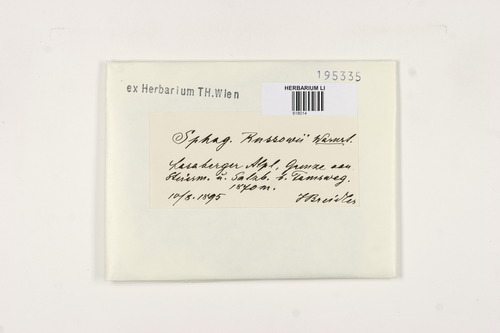 195335
ex Herbarium TH.Wien
HERBARIUM LI
Sphag. Russowii Warnst.
Lasaberger Alpl, Grenze von
Steierm. u. Salzb. b. Tamsweg.
1870 m.
10/8.1895 J Breidler